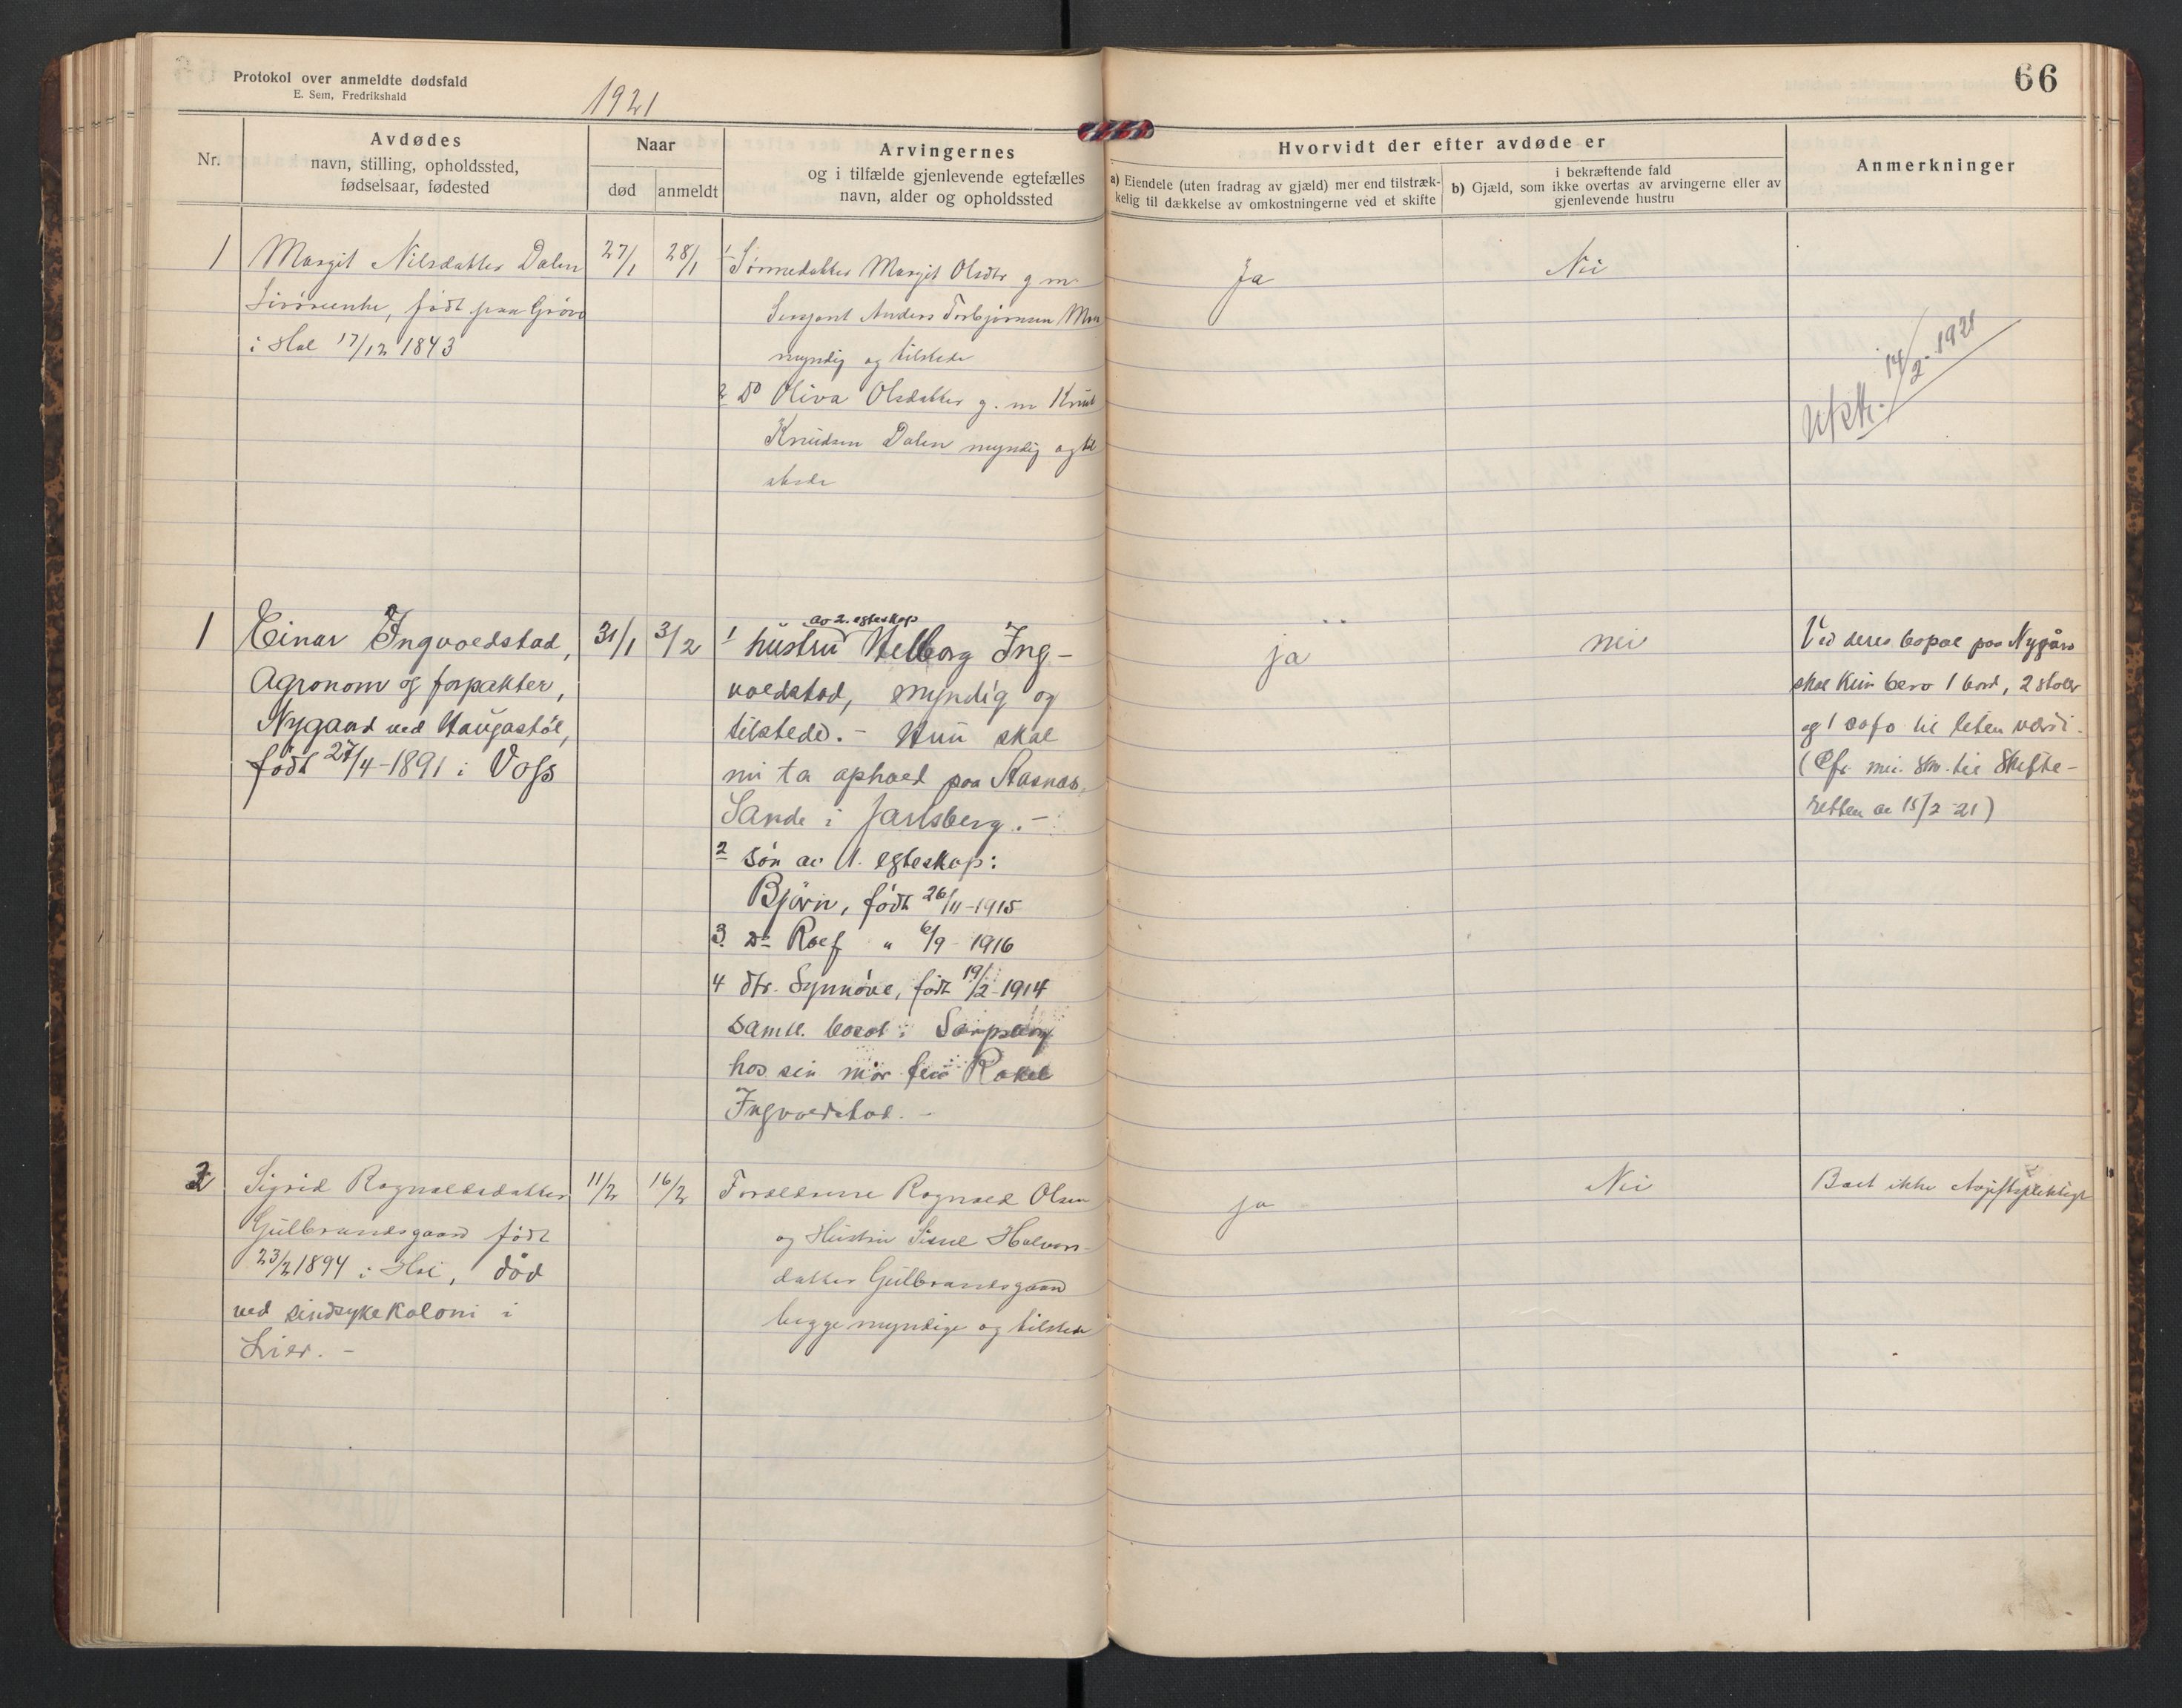 66
Protokol over anmeldte dødsfald
E. Sem, Fredrikshald
1921
Nr.
Avdødes
navn, stilling, opholdssted,
fødselsaar, fødested
Naar
død
anmeldt
Arvingernes
og i tilfælde gjenlevende egtefælles
navn, alder og opholdssted
Hvorvidt der efter avdøde er
a) Eiendele (uten fradrag av gjæld) mer end tilstræk-
kelig til dækkelse av omkostningerne ved et skifte
i bekræftende fald
b) Gjæld, som ikke overtas av arvingerne eller av
gjenlevende hustru
Anmerkninger
1
Margit Nilsdatter Dalen
født paa Grøvo
i Hol 17/12 1843
27/1
28/1
1 Sønnedatter Margit Olsdtr g m
Sersjant Anders Torbjørnsen Moen
myndig og tilstede
2 Do Oliva Olsdatter g. m Knut
Knudsen Dalen myndig og til
stede
Ja
Nei
14/2-1921
1
Einar Ingvoldstad,
Agronom og forpakter,
Nygaard ved Haugastøl,
født 27/4-1891 i Voss
31/1
3/2
av 2. egteskap
1 hustru Helborg Ing-
voldstad, myndig og
tilstede.- Hun skal
nu ta ophold paa
Sande i Jarlsberg.-
2 søn av 1. egteskap:
Björn, født 26/11-1915
3. Do Rolf " 6/9-1916
4 dtr. Synnöve, født 19/2-1914
samtl. bosat i Sarpsborg
hos sin mor fru Rakel
Ingvoldstad.-
ja
nei
Ved deres bopæl paa Nygård
skal kun bero 1 bord, 2 stoler
og 1 sofa til liten værdi.
(Cfr. min skr. til Skifte-
retten av 15/2-21)
2
Sigrid Ragnvaldsdatter
Gulbrandsgaard født
23/2 1894 i Hol, død
ved sindsykekoloni i
Lier.-
11/2
16/2
Forældrene Ragnvald Olsen
og Hustru Sissel Halvors-
datter Gulbrandsgaard
begge myndige og tilstede
ja
Nei
Boet ikke Avgiftspliktigt